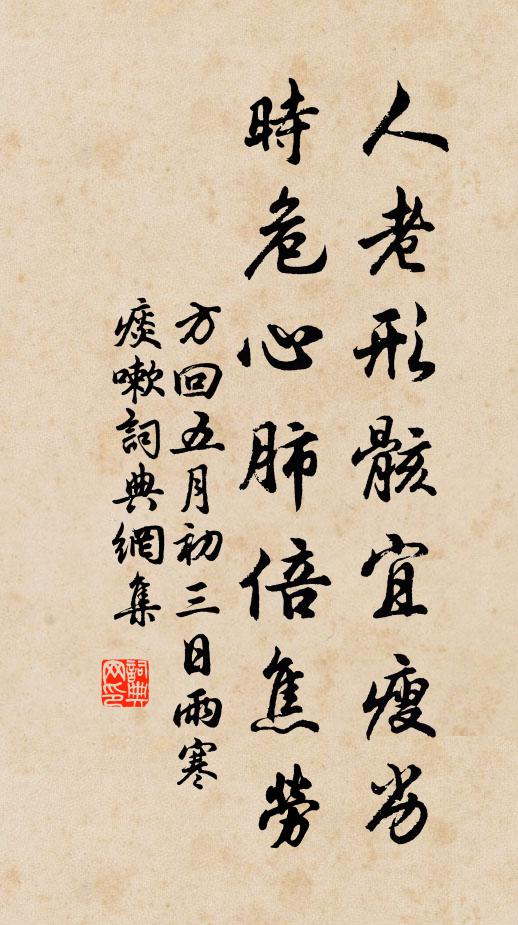 人老形骸宜瘦劣
時危心肺倍焦勞
方回五月初三日雨寒
痰嗽詞典網集
詞典网印